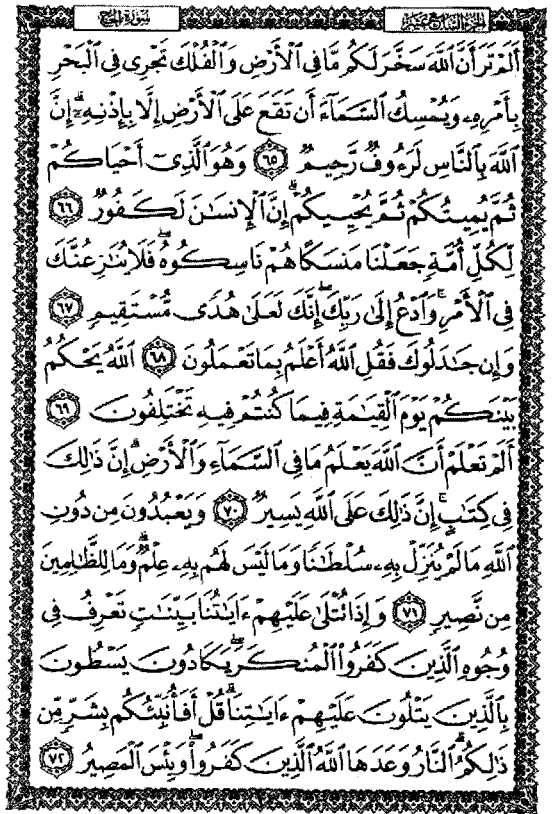 سُورَةُ الحَجّ الجزءُ السَّابع عَشر
أَلَمْ تَرَ أَنَّ ٱللَّهَ سَخَّرَ لَكُم مَّا فِى ٱلْأَرْضِ وَٱلْفُلْكَ تَجْرِى فِى ٱلْبَحْرِ
بِأَمْرِهِۦ وَيُمْسِكُ ٱلسَّمَآءَ أَن تَقَعَ عَلَى ٱلْأَرْضِ إِلَّا بِإِذْنِهِۦٓ ۗ إِنَّ
ٱللَّهَ بِٱلنَّاسِ لَرَءُوفٌ رَّحِيمٌ ٦٥ وَهُوَ ٱلَّذِىٓ أَحْيَاكُمْ
ثُمَّ يُمِيتُكُمْ ثُمَّ يُحْيِيكُمْ ۗ إِنَّ ٱلْإِنسَٰنَ لَكَفُورٌ ٦٦
لِّكُلِّ أُمَّةٍ جَعَلْنَا مَنسَكًا هُمْ نَاسِكُوهُ ۖ فَلَا يُنَٰزِعُنَّكَ
فِى ٱلْأَمْرِ ۚ وَٱدْعُ إِلَىٰ رَبِّكَ ۖ إِنَّكَ لَعَلَىٰ هُدًى مُّسْتَقِيمٍ ٦٧
وَإِن جَٰدَلُوكَ فَقُلِ ٱللَّهُ أَعْلَمُ بِمَا تَعْمَلُونَ ٦٨ ٱللَّهُ يَحْكُمُ
بَيْنَكُمْ يَوْمَ ٱلْقِيَٰمَةِ فِيمَا كُنتُمْ فِيهِ تَخْتَلِفُونَ ٦٩
أَلَمْ تَعْلَمْ أَنَّ ٱللَّهَ يَعْلَمُ مَا فِى ٱلسَّمَآءِ وَٱلْأَرْضِ ۗ إِنَّ ذَٰلِكَ
فِى كِتَٰبٍ ۚ إِنَّ ذَٰلِكَ عَلَى ٱللَّهِ يَسِيرٌ ٧٠ وَيَعْبُدُونَ مِن دُونِ
ٱللَّهِ مَا لَمْ يُنَزِّلْ بِهِۦ سُلْطَٰنًا وَمَا لَيْسَ لَهُم بِهِۦ عِلْمٌ ۗ وَمَا لِلظَّٰلِمِينَ
مِن نَّصِيرٍ ٧١ وَإِذَا تُتْلَىٰ عَلَيْهِمْ ءَايَٰتُنَا بَيِّنَٰتٍ تَعْرِفُ فِى
وُجُوهِ ٱلَّذِينَ كَفَرُوا۟ ٱلْمُنكَرَ ۖ يَكَادُونَ يَسْطُونَ
بِٱلَّذِينَ يَتْلُونَ عَلَيْهِمْ ءَايَٰتِنَا ۗ قُلْ أَفَأُنَبِّئُكُم بِشَرٍّ مِّن
ذَٰلِكُمُ ۗ ٱلنَّارُ وَعَدَهَا ٱللَّهُ ٱلَّذِينَ كَفَرُوا۟ ۖ وَبِئْسَ ٱلْمَصِيرُ ٧٢